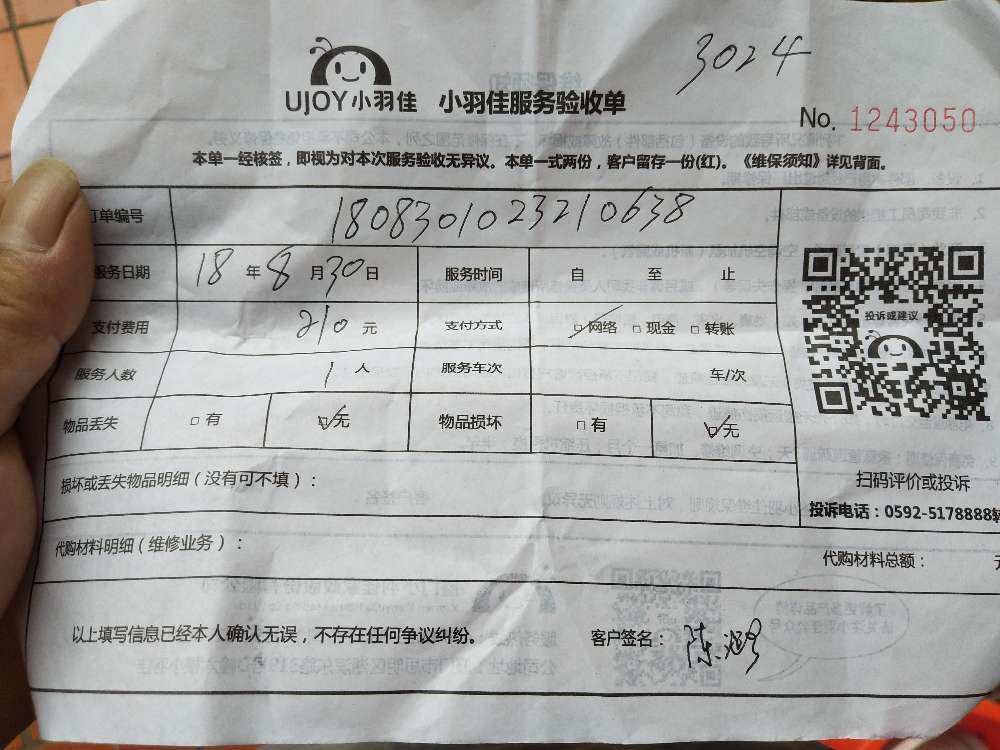 3024
UJOY小羽佳 小羽佳服务验收单
No. 1243050
本单一经核签，即视为对本次服务验收无异议。本单一式两份，客户留存一份(红)。《维保须知》详见背面。
订单编号 1808301023210638
服务日期 18年8月30日 服务时间 自 至 止
支付费用 210元 支付方式 □网络 □现金 □转账
投诉或建议
服务人数 1人 服务车次 车/次
物品丢失 □有 ☑无 物品损坏 □有 ☑无
损坏或丢失物品明细（没有可不填）：
扫码评价或投诉
投诉电话：0592-5178888转
代购材料明细（维修业务）：
代购材料总额： 元
以上填写信息已经本人确认无误，不存在任何争议纠纷。 客户签名：陈鸿